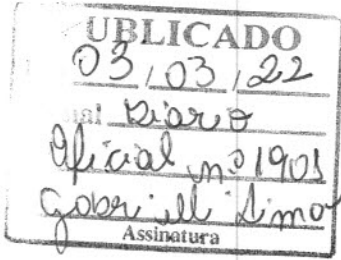 UBLICADO
03/03/22
al Diario
Oficial nº 1901
Gabrielli Lima
Assinatura